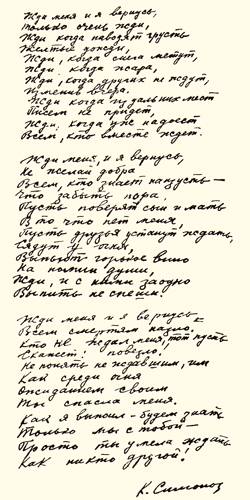 Жди меня и я вернусь,
только очень жди,
Жди когда наводят грусть
Желтые дожди,
Жди, когда снега метут,
Жди, когда жара,
Жди, когда других не ждут,
Изменив вчера.
Жди когда из дальних мест
Писем не придет,
Жди, когда уж надоест
Всем, кто вместе ждет.
Жди меня, и я вернусь,
Не желай добра
Всем, кто знает наизусть —
Что забыть пора
Пусть поверят сын и мать
В то что нет меня,
Пусть друзья устанут ждать,
Сядут у огня,
Выпьют горькое вино
На помин души,
Жди, и с ними заодно
Выпить не спеши.
Жди меня и я вернусь —
Всем смертям назло.
Кто не ждал меня, тот пусть
Скажет: повезло.
Не понять не ждавшим, им
Как среди огня
Ожиданием своим
Ты спасла меня.
Как я выжил — будем знать
Только мы с тобой —
Просто ты умела ждать
Как никто другой!
К. Симонов